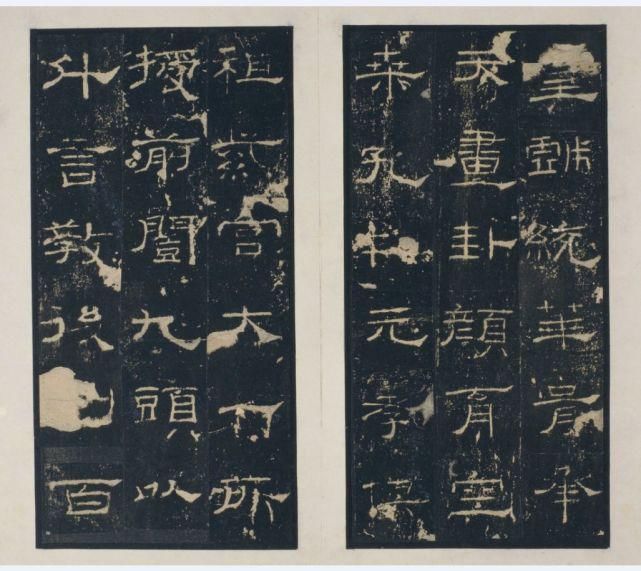 皇戲統華胥承
天畫卦顏育空
桑孔元孝俱
祖紫宮大一所
授前闓九頭以
什言教後百